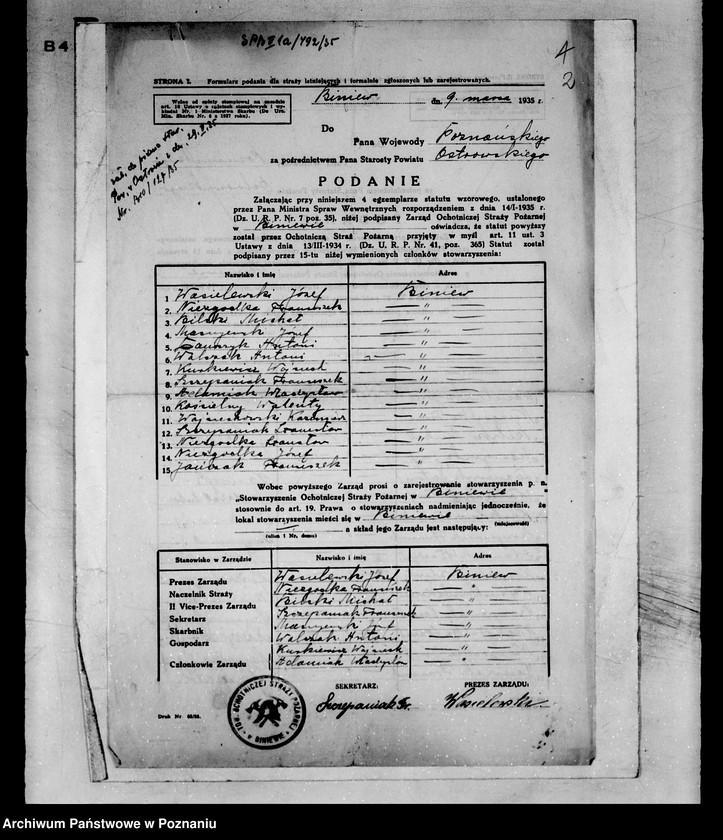 B4
SPA II 1a/492/35
4
2
STRONA I. Formularz podania dla straży istniejących i formalnie zgłoszonych lub zarejestrowanych.
Wolne od opłaty stemplowej na zasadzie
art. 16 Ustawy o opłatach stemplowych i wy-
kładni Nr. 1 Ministerstwa Skarbu (Dz. Urz.
Min. Skarbu Nr. 6 z 1927 roku).
Biniew dn. 9. marca 1935 r.
Do
Pana Wojewody Poznańskiego
za pośrednictwem Pana Starosty Powiatu Ostrowskiego
PODANIE
Załączając przy niniejszem 4 egzemplarze statutu wzorowego, ustalonego
przez Pana Ministra Spraw Wewnętrznych rozporządzeniem z dnia 14/I-1935 r.
(Dz. U. R. P. Nr. 7 poz. 35), niżej podpisany Zarząd Ochotniczej Straży Pożarnej
w Biniewie oświadcza, że statut powyższy
został przez Ochotniczą Straż Pożarną przyjęty w myśl art. 11 ust. 3
Ustawy z dnia 13/III-1934 r. (Dz. U. R. P. Nr. 41, poz. 365) Statut został
podpisany przez 15-tu niżej wymienionych członków stowarzyszenia:
Nazwisko i imię Adres
1. Wasielewski Józef Biniew
2. Niezgodka Franciszek — " —
3. Bilski Michał — " —
4. Józef — " —
5. Antoni — " —
6. Walczak Antoni — " —
7. Kurkiewicz Wojciech — " —
8. Szczepaniak Franciszek — " —
9. Adamiak Władysław — " —
10. Kościelny Walenty — " —
11. Wojciechowski Kazimierz — " —
12. Szczepaniak Stanisław — " —
13. Niezgodka Stanisław — " —
14. Niezgodka Józef — " —
15. Franciszek — " —
Wobec powyższego Zarząd prosi o zarejestrowanie stowarzyszenia p. n.
„Stowarzyszenie Ochotniczej Straży Pożarnej w Biniewie "
stosownie do art. 19. Prawa o stowarzyszeniach nadmieniając jednocześnie, że
lokal stowarzyszenia mieści się w Biniewie
(miejscowość)
— a skład jego Zarządu jest następujący:
(ulica i Nr. domu)
Stanowisko w Zarządzie Nazwisko i imię Adres
Prezes Zarządu Wasielewski Józef Biniew
Naczelnik Straży Niezgodka Franciszek — " —
II Vice-Prezes Zarządu Bilski Michał — " —
Sekretarz Szczepaniak Franciszek — " —
Skarbnik Józef — " —
Gospodarz Walczak Antoni — " —
Kurkiewicz Wojciech — " —
Członkowie Zarządu Adamiak Władysław — " —
SEKRETARZ: PREZES ZARZĄDU:
Szczepaniak Fr. Wasielewski
TOW. OCHOTNICZEJ STRAŻY POŻARNEJ
W BINIEWIE
Archiwum Państwowe w Poznaniu